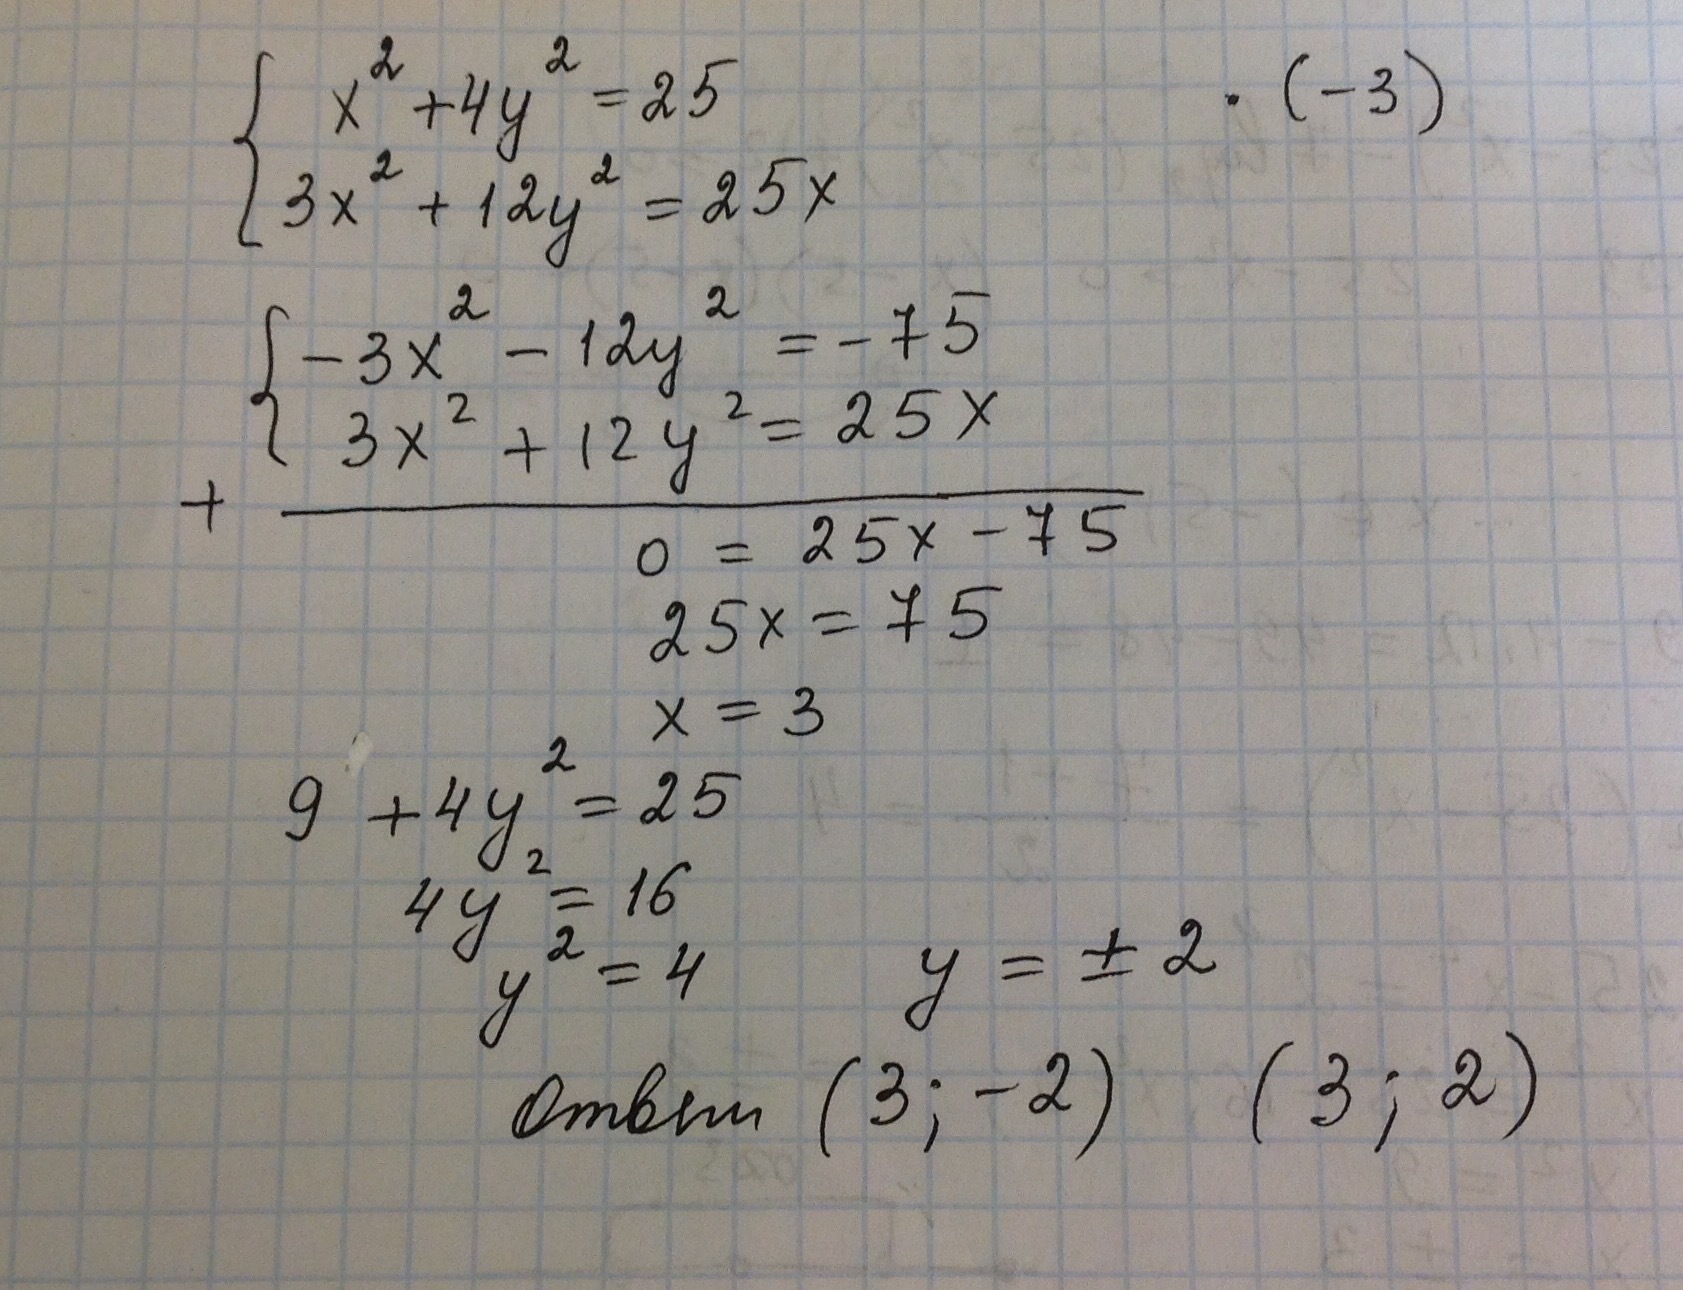 x² + 4y² = 25 · (-3)
3x² + 12y² = 25x
-3x² - 12y² = -75
3x² + 12y² = 25x
+
0 = 25x - 75
25x = 75
x = 3
9 + 4y² = 25
4y² = 16
y² = 4 y = ± 2
Ответ (3; -2) (3; 2)